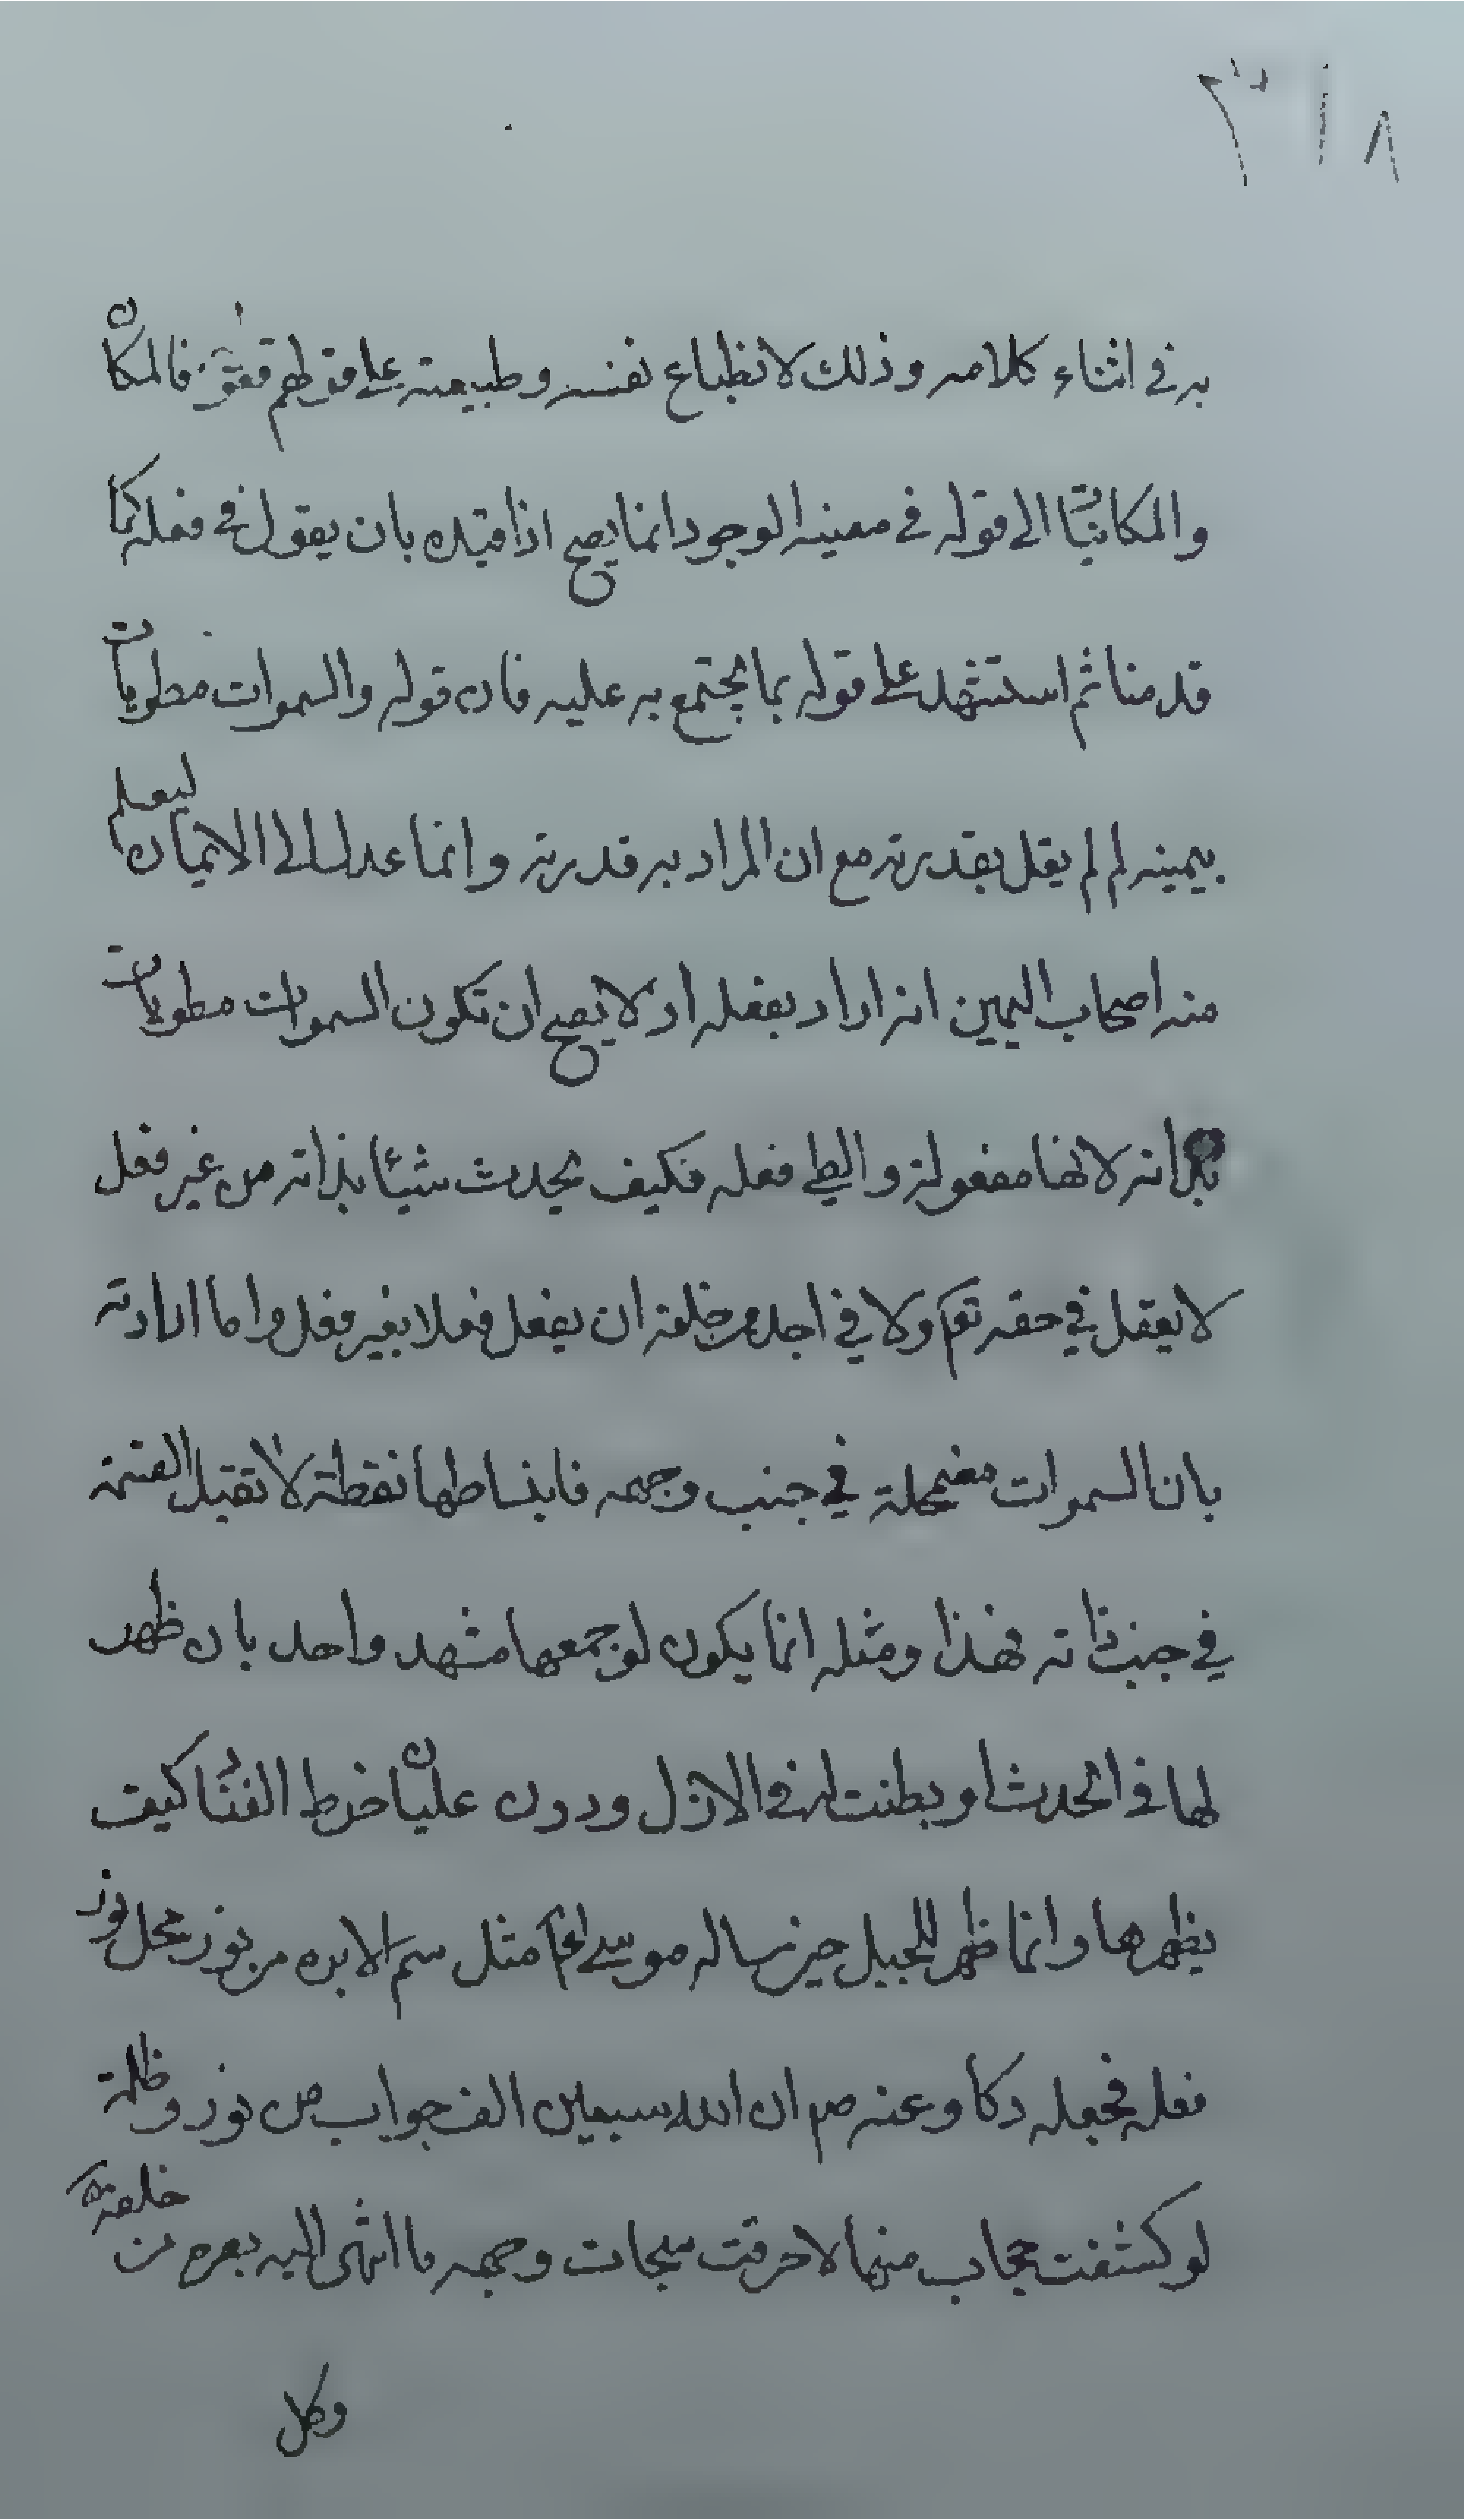 ٣١٨
به في اثناء كلامه وذلك لانطباع نفسه وطبيعته على قولهم فقوله فالمكان
والمكانيّا الى قوله في معية الوجود انما يصح اذا قيّده بان يقول في فعله كما
قدمنا ثم استشهد على قوله بما يحتج به عليه فان قوله والسموات مطويات
بيمينه لم لم يقل بقدرته مع ان المراد به قدرته وانما عدل الى الايمان ليعلم
منه اصحاب اليمين انه اراد بفعله اذ لا يصح ان تكون السموات مطويات
بذاته لانها مفعولة والطي فعله فكيف يحدث شيئا بذاته من غير فعل
لا يعقل في حقه تعم ولا في احد من خلقه ان يفعل فعلا بغير فعل واما ارادته
بان السموات مضمحلة في جنب وجهه فانبساطها نقطة لا تقبل القسمة
في جنب ذاته فهذا ومثله انما يكون لو جمعها مشهد واحد بان ظهر
لها في الحدث او بطنت له في الازل ودون عليان خرط القتاد كيف
يظهر لها وانما ظهر للجبل حين ساله موسى ع مثل سم الابره من نور محل نور
فعله فجعله دكا وعنه ص ان لله سبعين الف حجاب من نور وظلمة
لو كشفت حجاب منها لاحرقت سبحات وجهه ما انتهى اليه بصره من خلقه
وكل